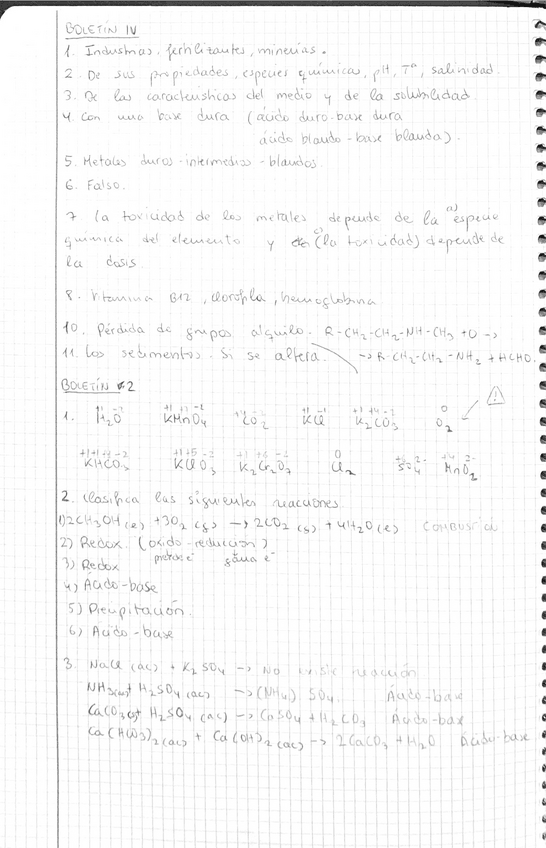 BOLETÍN IV
1. Industrias, fertilizantes, minerias.
2. De sus propiedades, especies químicas, pH, Tª, salinidad.
3. De las características del medio y de la solubilidad.
4. Con una base dura (ácido duro-base dura
ácido blando-base blanda).
5. Metales duros-intermedios-blandos.
6. Falso.
7 La toxicidad de los metales depende de la a) especie
química del elemento y c) (la toxicidad) depende de
la dosis.
8. Vitamina B12, clorofila, hemoglobina
10. Pérdida de grupos alquilo. R-CH2-CH2-NH-CH3 +O →
11. Los sedimentos. Si se altera. → R-CH2-CH2-NH2 + HCHO.
BOLETÍN 2
1. H2O KMnO4 CO2 KCl K2CO3 O2
KHCO3 KClO3 K2Cr2O7 Cl2 SO4 MnO2
2. Clasifica las siguientes reacciones
1) 2CH3OH (l) + 3O2 (g) → 2CO2 (g) + 4H2O (l)
2) Redox. (oxido-reducción)
3) Redox pierde e⁻ gana e⁻
4) Ácido-base
5) Precipitación.
6) Ácido-base
3. NaCl (ac) + K2SO4 → No existe reacción
NH3(ac) + H2SO4 (ac) → (NH4) SO4. Ácido-base
CaCO3(s) + H2SO4 (ac) → CaSO4 + H2CO3 Ácido-base
Ca(HCO3)2 (ac) + Ca(OH)2 (ac) → 2CaCO3 + H2O Ácido-base